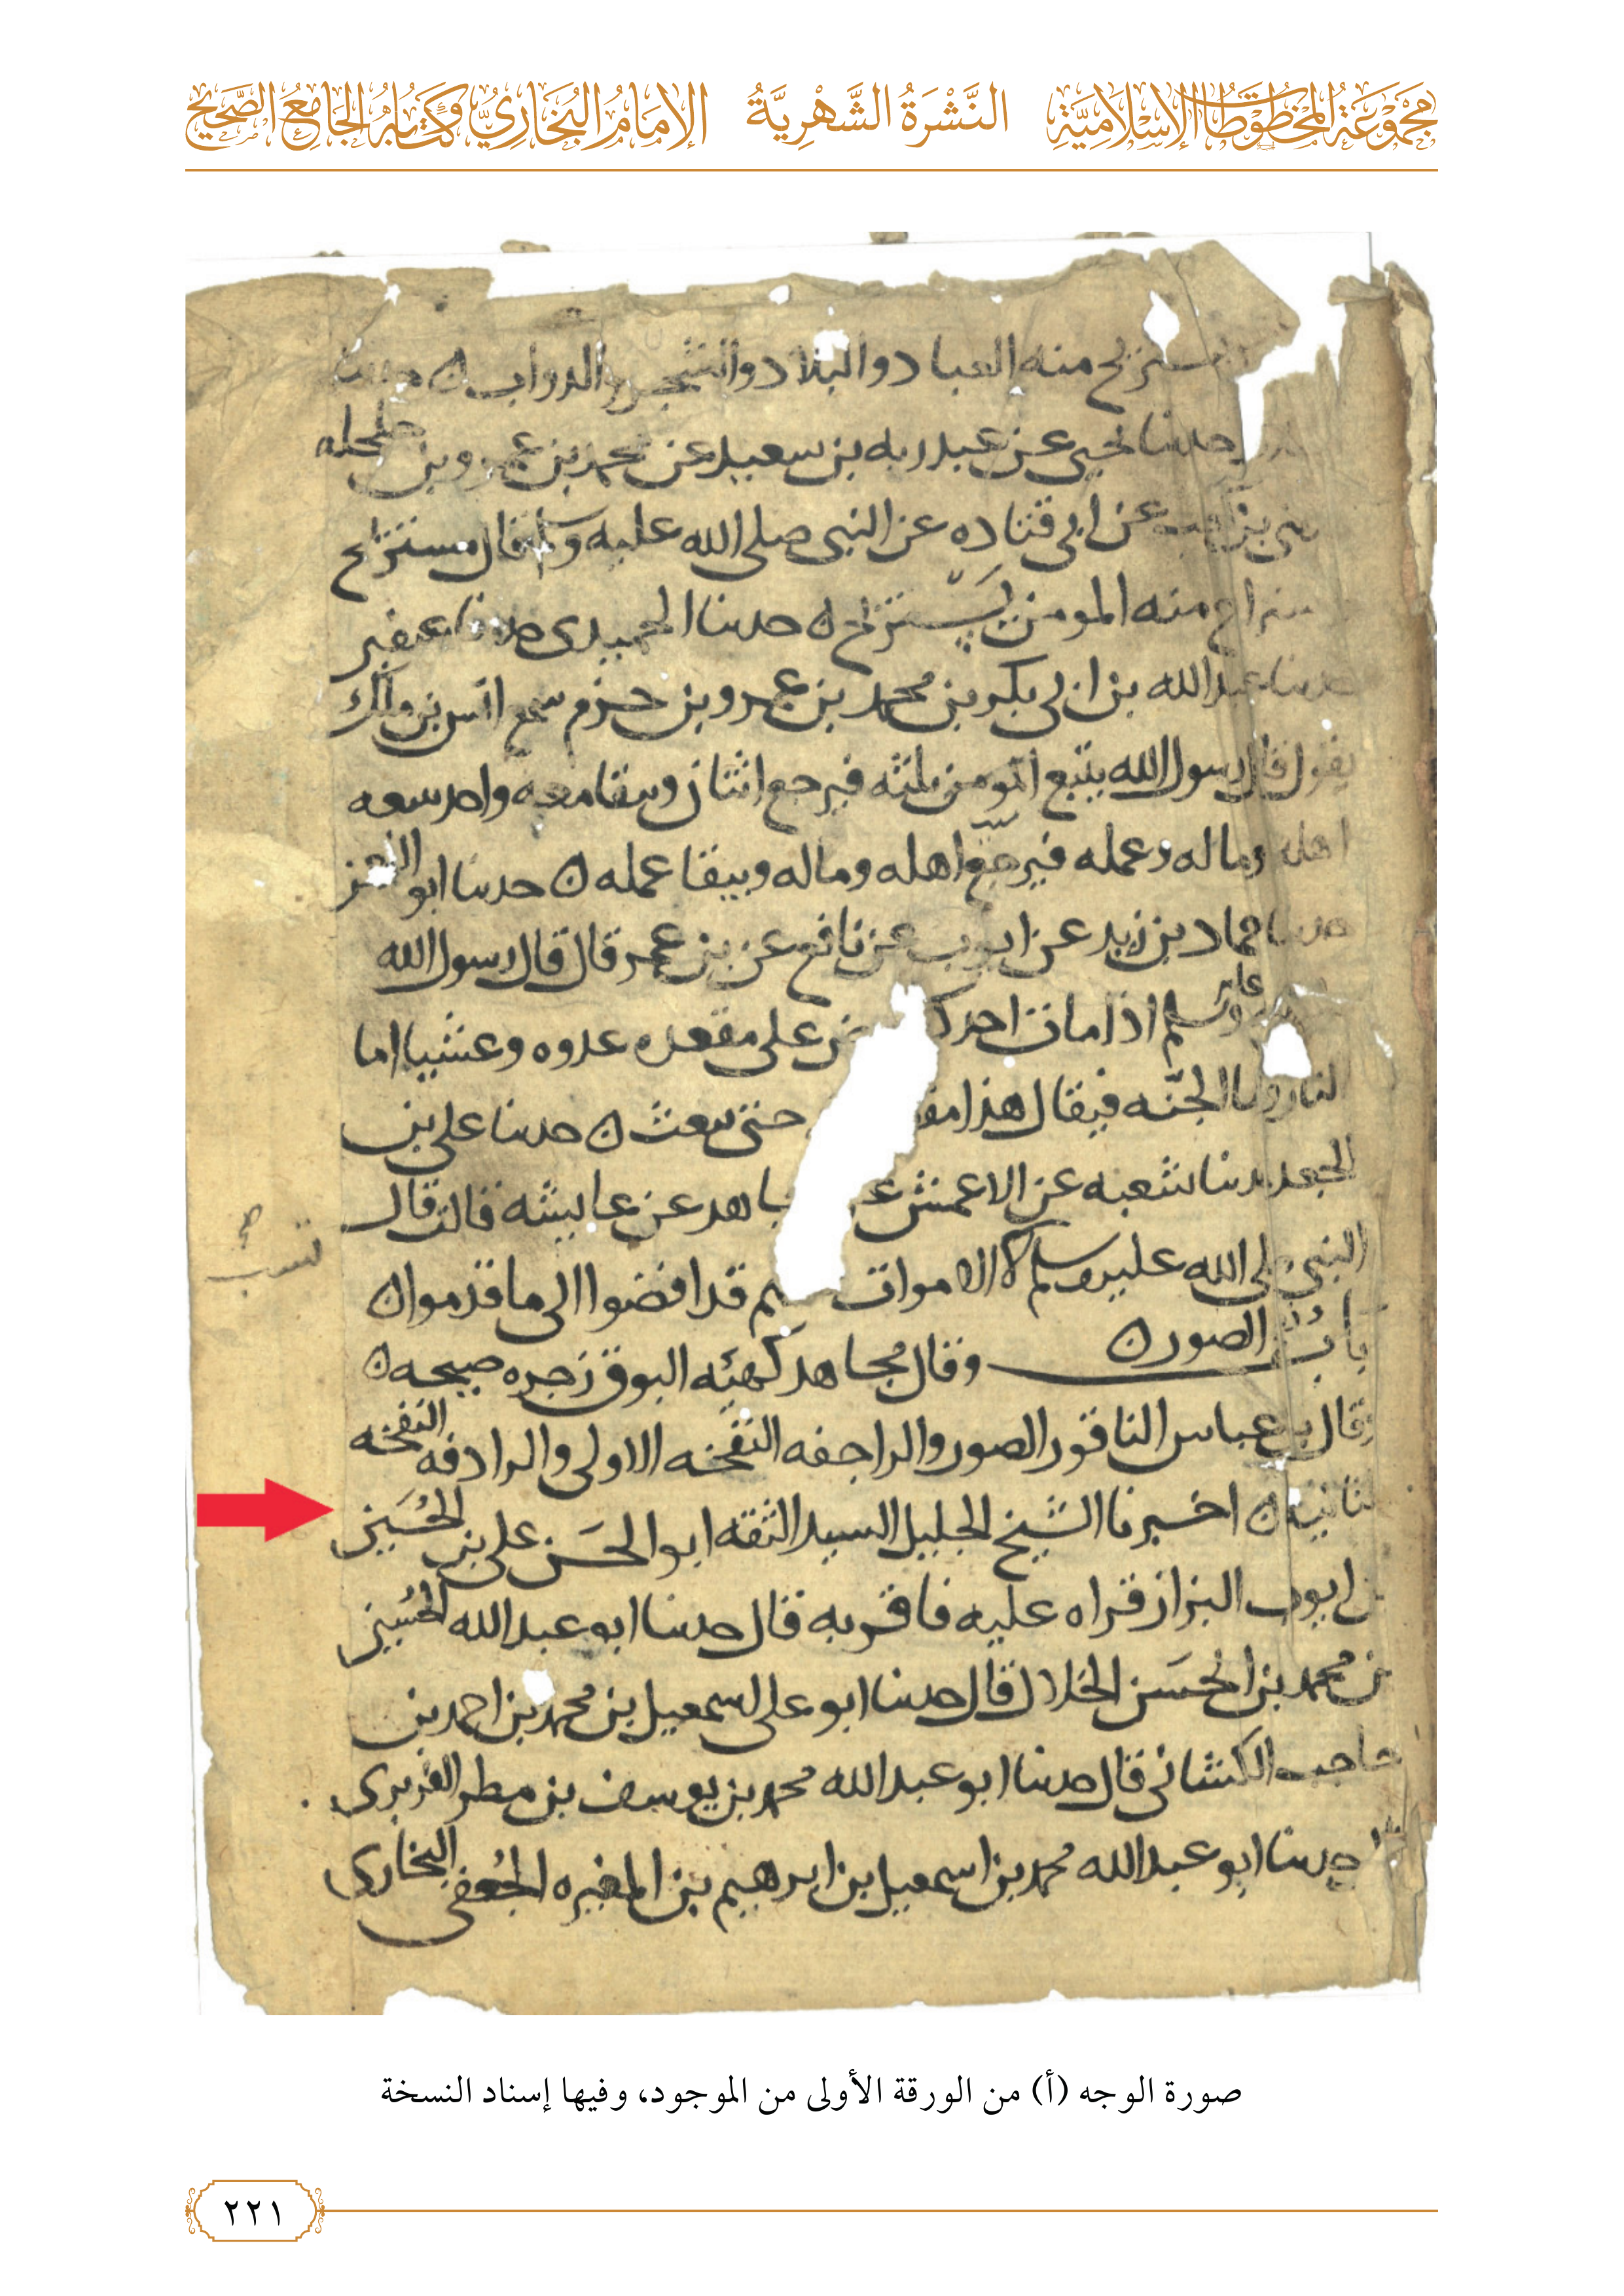 مَجْمُوعَةُ المَخْطُوطَاتِ الإِسْلَامِيَّةِ النَّشْرَةُ الشَّهْرِيَّةُ الإِمَامُ البُخَارِيُّ وَكِتَابُهُ الجَامِعُ الصَّحِيحُ
منه العباد والبلاد والشجر والدواب ه حدىنا
حدىنا يحيى عن عبد ربه بن سعيد عن محمد بن عمرو بن حلحله
عن ابى قتاده عن النبى صلى الله عليه وسلم قال مستريح
منه المومن يستريح ه حدىنا الحميدى حدىنا
حدىنا عبد الله بن ابى بكر بن محمد بن عمرو بن حزم سمع انس بن ملك
يقول قال رسول الله يتبع المومن ثلثه فيرجع اثنان ويبقا معه واحد ىتىعه
اهله وماله وعمله فيرجع اهله وماله ويبقا عمله ه حدىنا ابو
حدىنا حماد بن زيد عن ايوب عن نافع عن بن عمر قال قال رسول الله
عليه وسلم اذا مات احدكم على مقعده غدوه وعشيا اما
النار واما الجنه فيقال هذا حتى ىىعث ه حدىنا على بن
الجعد حدىنا شعبه عن الاعمش عن عايشه قالت قال
النبى صلى الله عليه وسلم الاموات قد افضوا الى ما قدموا ه
باب الصور ه وقال مجاهد كهيئه البوق زجره صيحه ه
وقال بن عباس الناقور الصور والراجفه النفخه الاولى والرادفه النفخه
الثانيه ه اخبرنا الشيخ الجليل السيد الثقه ابو الحَسَن على بن الحُسَين
بن ايوب البزاز قراه عليه فاقر به قال حدىنا ابو عبد الله الحُسين
بن محمد بن الحَسَن الخلال قال حدىنا ابو على اسمعيل بن محمد بن احمد بن
حاجب الكشانى قال حدىنا ابو عبد الله محمد بن يوسف بن مطر الفربرى
حدىنا ابو عبد الله محمد بن اسمعيل بن ابرهيم بن المغيره الجُعفى البخارى
صورة الوجه (أ) من الورقة الأولى من الموجود، وفيها إسناد النسخة
٢٢١